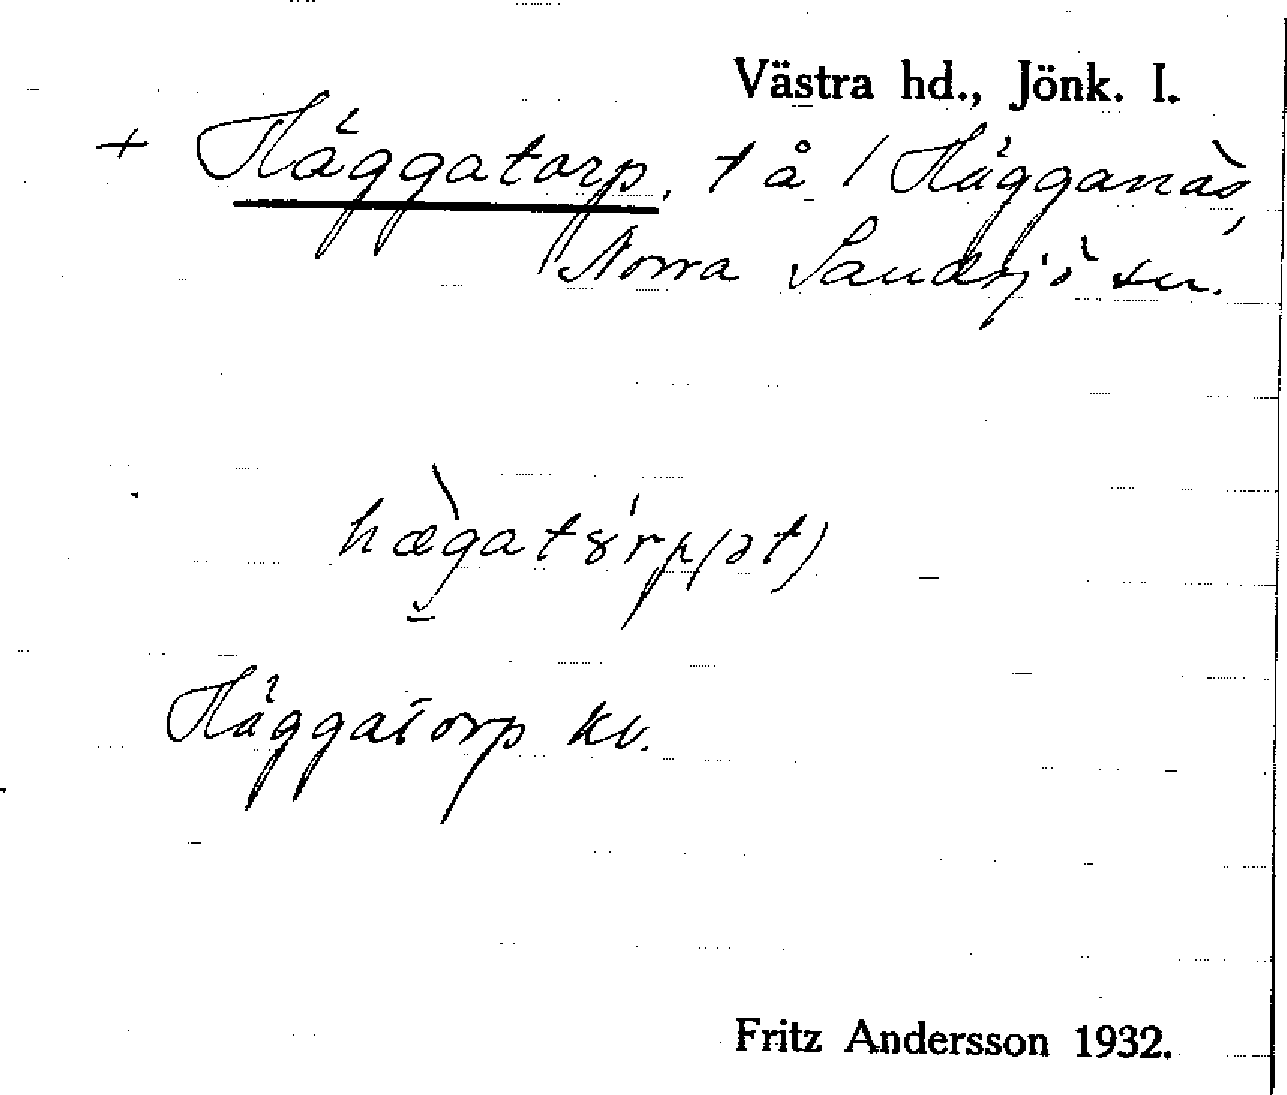 Västra hd., Jönk. l.
+ Häggatorp, t å / Hägganäs,
Norra Sandsjö sn.
hægatȣrp(ət)
Häggatorp kv.
Fritz Andersson 1932.